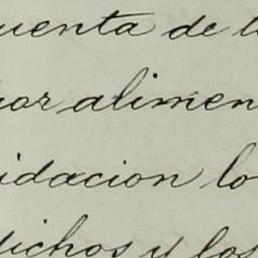 uenta de l
or alimen
idacion lo
dichos y los